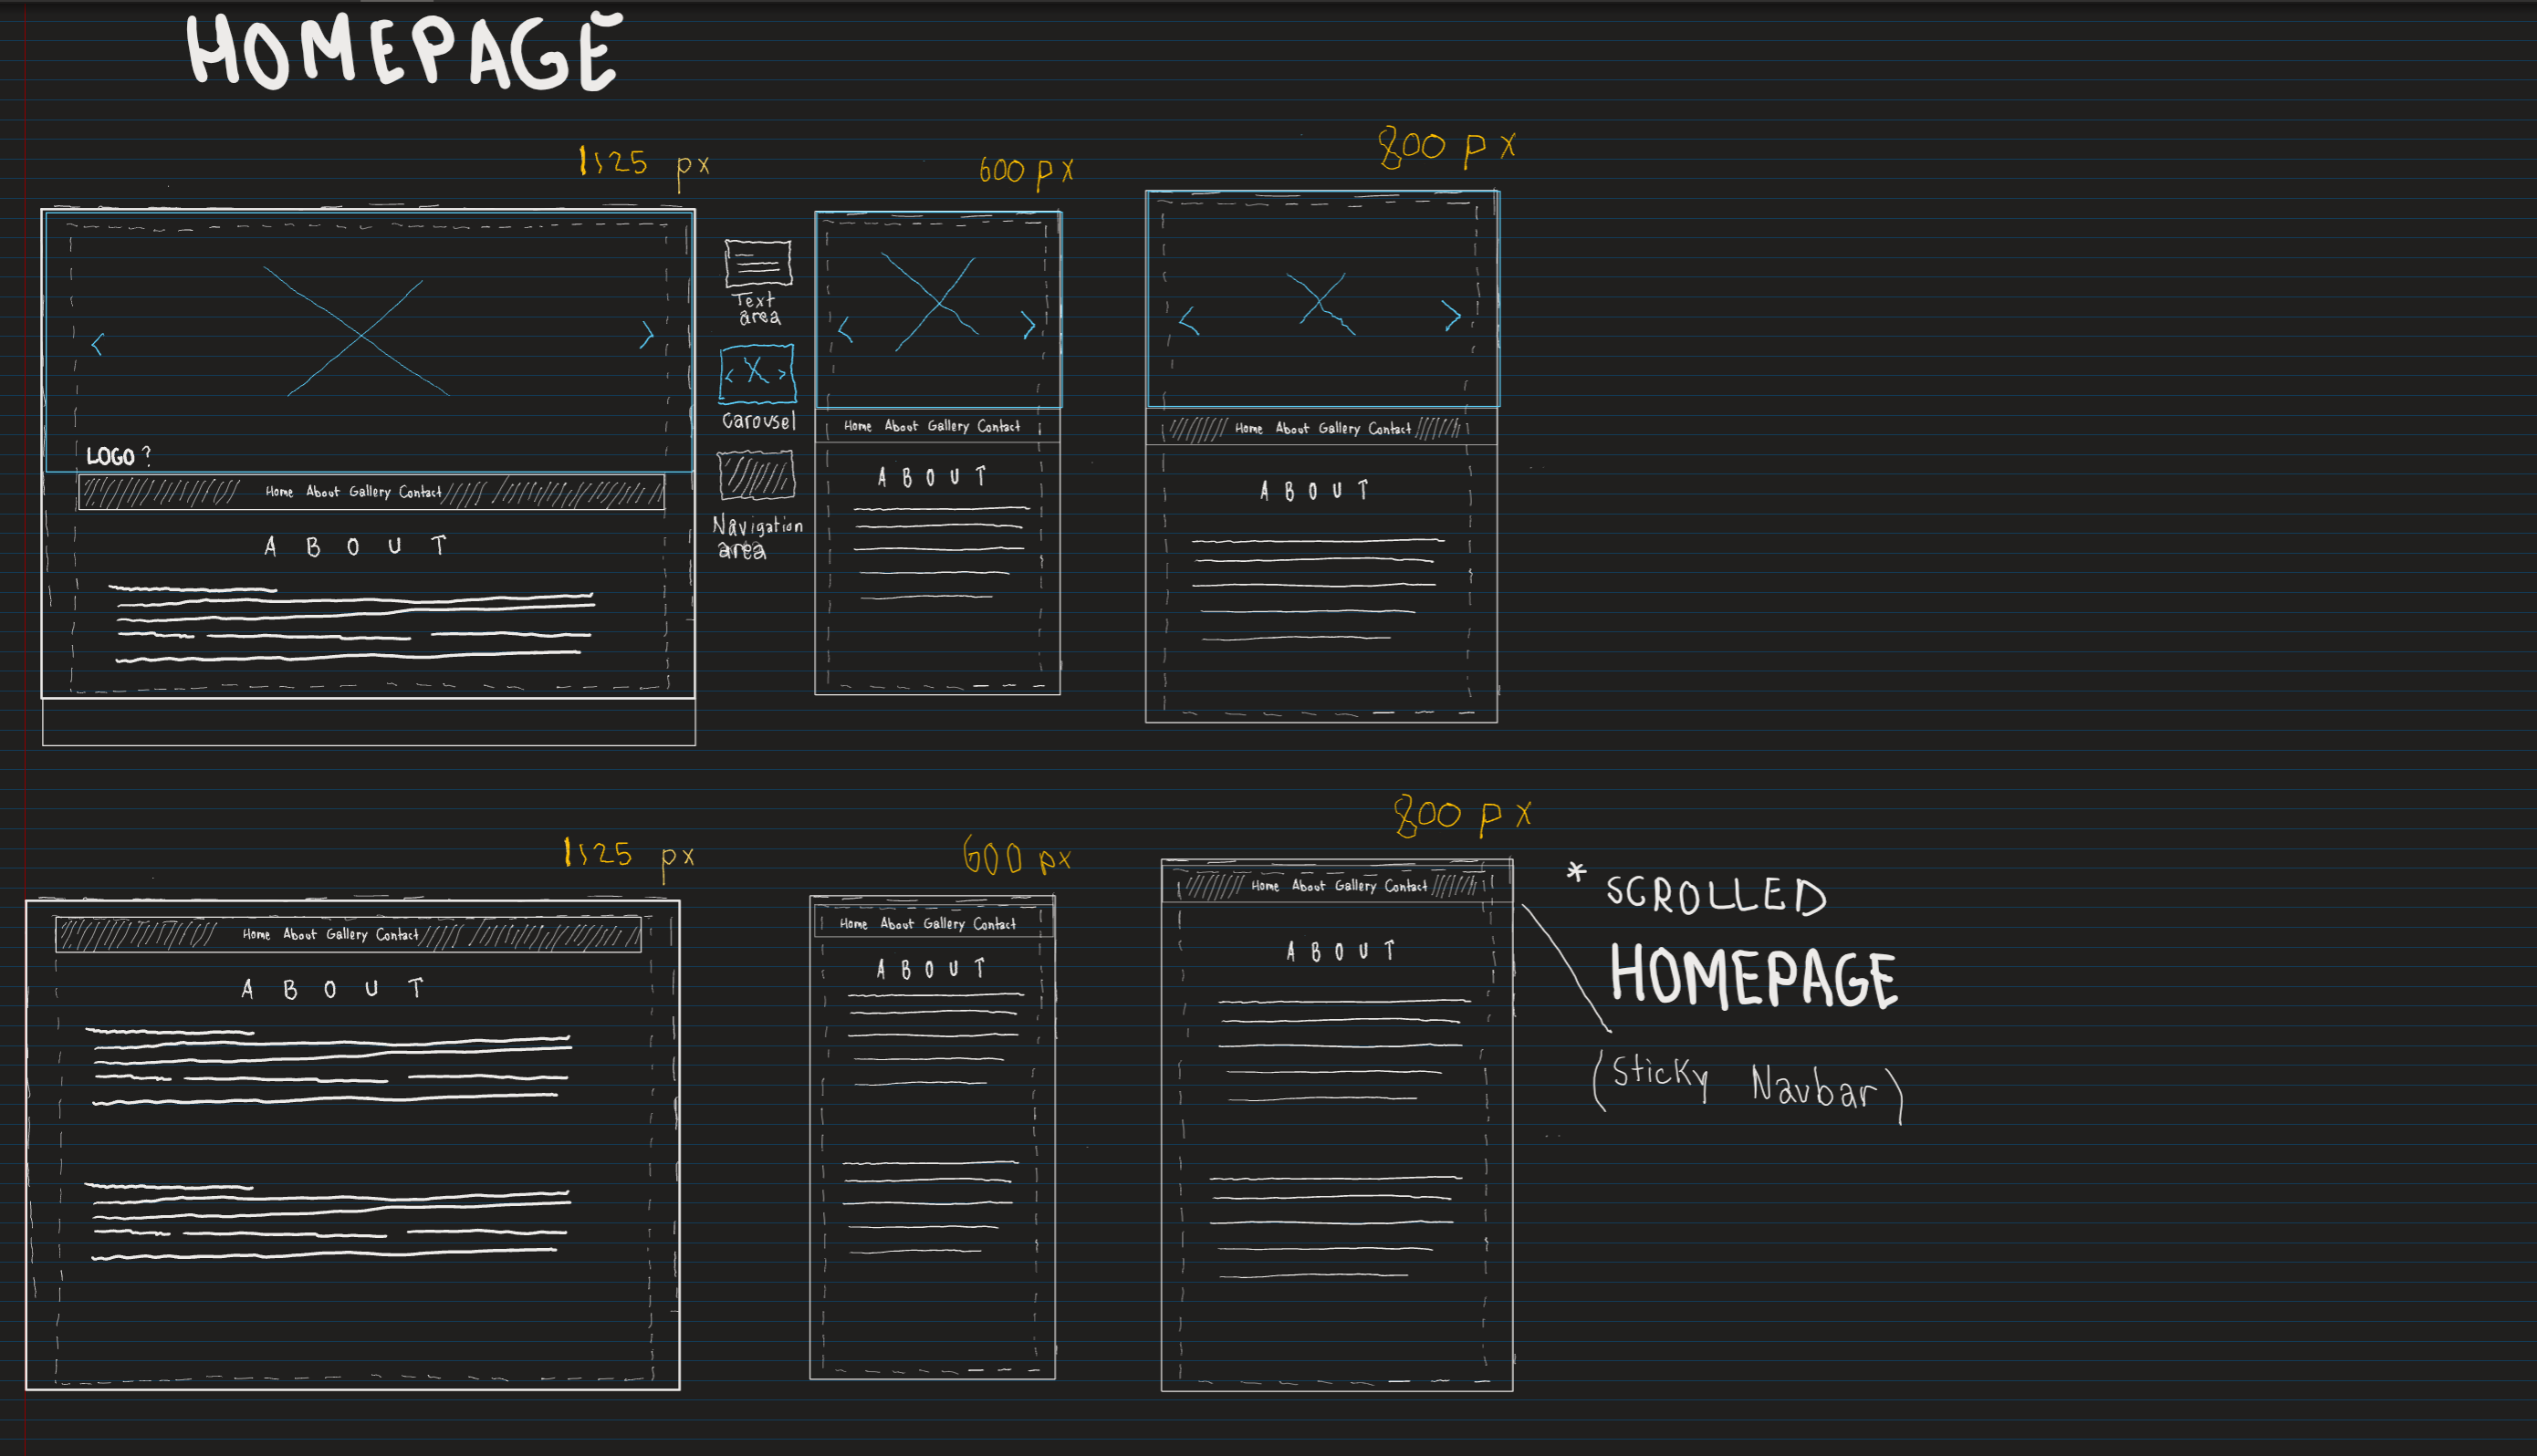 HOMEPAGE
1525 px
600 px
800 px
LOGO ?
Home About Gallery Contact
A B O U T
Text
area
Carousel
Navigation
area
Home About Gallery Contact
A B O U T
Home About Gallery Contact
A B O U T
1525 px
600 px
800 px
Home About Gallery Contact
A B O U T
Home About Gallery Contact
A B O U T
Home About Gallery Contact
A B O U T
* SCROLLED
HOMEPAGE
(Sticky Navbar)